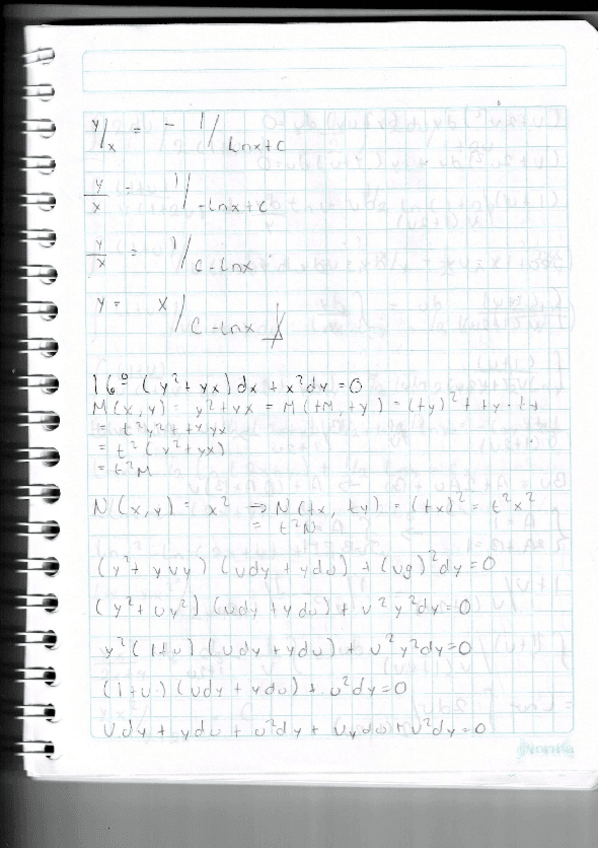 y/x = - 1/Lnx+c
y/x = 1/-Lnx+c
y/x = 1/c-Lnx
y = x/c-Lnx
16º (y²+yx)dx + x²dy=0
M(x,y) = y²+yx = M(tM,ty) = (ty)²+ty·tx
= t²y²+txyx
= t²(y²+yx)
= t²M
N(x,y) = x² → N(tx, ty) = (tx)² = t²x²
= t²N
(y²+yvy)(vdy+ydv)+(vy)²dy=0
(y²+vy²)(vdy+ydv)+v²y²dy=0
y²(1+v)(vdy+ydv)+v²y²dy=0
(1+v)(vdy+ydv)+v²dy=0
vdy+ydv+v²dy+vydv+v²dy=0
Norma